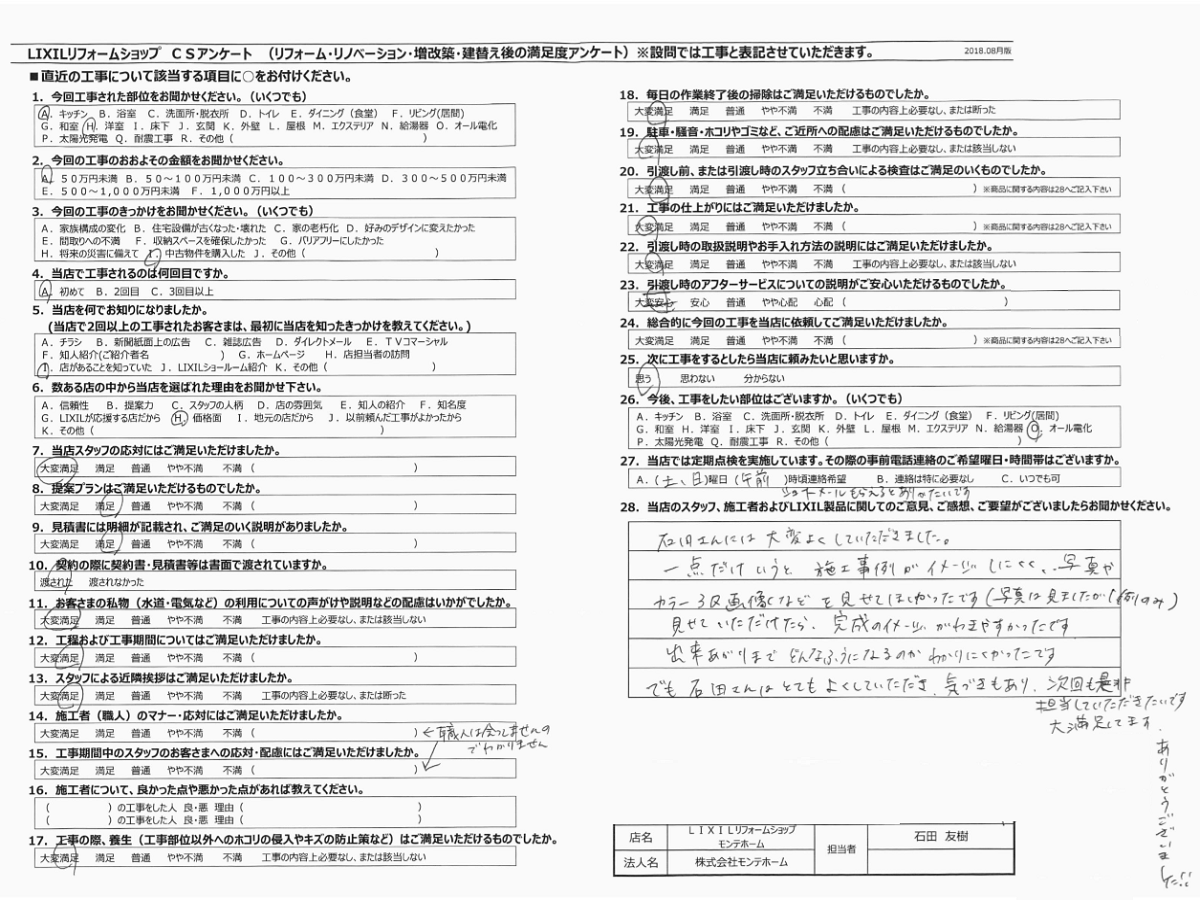 LIXILリフォームショップ　ＣＳアンケート　（リフォーム・リノベーション・増改築・建替え後の満足度アンケート）※設問では工事と表記させていただきます。
2018.08月版
■直近の工事について該当する項目に○をお付けください。
1．今回工事された部位をお聞かせください。（いくつでも）
A．キッチン　B．浴室　C．洗面所・脱衣所　D．トイレ　E．ダイニング（食堂）　F．リビング(居間)
G．和室　H．洋室　I．床下　J．玄関　K．外壁　L．屋根　M．エクステリア　N．給湯器　O．オール電化
P．太陽光発電　Q．耐震工事　R．その他（　　　）
2．今回の工事のおおよその金額をお聞かせください。
A．５０万円未満　B．５０～１００万円未満　C．１００～３００万円未満　D．３００～５００万円未満
E．５００～1,０００万円未満　F．1,０００万円以上
3．今回の工事のきっかけをお聞かせください。（いくつでも）
A．家族構成の変化　B．住宅設備が古くなった・壊れた　C．家の老朽化　D．好みのデザインに変えたかった
E．間取りへの不満　F．収納スペースを確保したかった　G．バリアフリーにしたかった
H．将来の災害に備えて　I．中古物件を購入した　J．その他（　　　）
4．当店で工事されるのは何回目ですか。
A．初めて　B．2回目　C．3回目以上
5．当店を何でお知りになりましたか。
(当店で２回以上の工事されたお客さまは、最初に当店を知ったきっかけを教えてください。)
A．チラシ　B．新聞紙面上の広告　C．雑誌広告　D．ダイレクトメール　E．ＴＶコマーシャル
F．知人紹介(ご紹介者名　　　）　G．ホームページ　H．店担当者の訪問
I．店があることを知っていた　J．LIXILショールーム紹介　K．その他（　　　）
6．数ある店の中から当店を選ばれた理由をお聞かせ下さい。
A．信頼性　B．提案力　C．スタッフの人柄　D．店の雰囲気　E．知人の紹介　F．知名度
G．LIXILが応援する店だから　H．価格面　I．地元の店だから　J．以前頼んだ工事がよかったから
K．その他（　　　）
7．当店スタッフの応対にはご満足いただけましたか。
大変満足　満足　普通　やや不満　不満（　　　）
8．提案プランはご満足いただけるものでしたか。
大変満足　満足　普通　やや不満　不満（　　　）
9．見積書には明細が記載され、ご満足のいく説明がありましたか。
大変満足　満足　普通　やや不満　不満（　　　）
10．契約の際に契約書・見積書等は書面で渡されていますか。
渡された　渡されなかった
11．お客さまの私物（水道・電気など）の利用についての声がけや説明などの配慮はいかがでしたか。
大変満足　満足　普通　やや不満　不満　工事の内容上必要なし、または該当しない
12．工程および工事期間についてはご満足いただけましたか。
大変満足　満足　普通　やや不満　不満（　　　）
13．スタッフによる近隣挨拶はご満足いただけましたか。
大変満足　満足　普通　やや不満　不満　工事の内容上必要なし、または断った
14．施工者（職人）のマナー・応対にはご満足いただけましたか。
大変満足　満足　普通　やや不満　不満（　　　）
←職人は会ってませんの
でわかりません
15．工事期間中のスタッフのお客さまへの応対・配慮にはご満足いただけましたか。
大変満足　満足　普通　やや不満　不満（　　　）
16．施工者について、良かった点や悪かった点があれば教えてください。
（　　　）の工事をした人　良・悪　理由（　　　）
（　　　）の工事をした人　良・悪　理由（　　　）
17．工事の際、養生（工事部位以外へのホコリの侵入やキズの防止策など）はご満足いただけるものでしたか。
大変満足　満足　普通　やや不満　不満　工事の内容上必要なし、または該当しない
18．毎日の作業終了後の掃除はご満足いただけるものでしたか。
大変満足　満足　普通　やや不満　不満　工事の内容上必要なし、または断った
19．駐車・騒音・ホコリやゴミなど、ご近所への配慮はご満足いただけるものでしたか。
大変満足　満足　普通　やや不満　不満　工事の内容上必要なし、または該当しない
20．引渡し前、または引渡し時のスタッフ立ち合いによる検査はご満足のいくものでしたか。
大変満足　満足　普通　やや不満　不満（　　　）※商品に関する内容は28へご記入下さい
21．工事の仕上がりにはご満足いただけましたか。
大変満足　満足　普通　やや不満　不満（　　　）※商品に関する内容は28へご記入下さい
22．引渡し時の取扱説明やお手入れ方法の説明にはご満足いただけましたか。
大変満足　満足　普通　やや不満　不満　工事の内容上必要なし、または該当しない
23．引渡し時のアフターサービスについての説明がご安心いただけるものでしたか。
大変安心　安心　普通　やや心配　心配（　　　）
24．総合的に今回の工事を当店に依頼してご満足いただけましたか。
大変満足　満足　普通　やや不満　不満（　　　）※商品に関する内容は28へご記入下さい
25．次に工事をするとしたら当店に頼みたいと思いますか。
思う　思わない　分からない
26．今後、工事をしたい部位はございますか。（いくつでも）
A．キッチン　B．浴室　C．洗面所・脱衣所　D．トイレ　E．ダイニング（食堂）　F．リビング(居間)
G．和室　H．洋室　I．床下　J．玄関　K．外壁　L．屋根　M．エクステリア　N．給湯器　O．オール電化
P．太陽光発電　Q．耐震工事　R．その他（　　　）
27．当店では定期点検を実施しています。その際の事前電話連絡のご希望曜日・時間帯はございますか。
A．（土、日）曜日（午前　）時頃連絡希望　B．連絡は特に必要なし　C．いつでも可
ショートメールもらえるとありがたいです
28．当店のスタッフ、施工者およびLIXIL製品に関してのご意見、ご感想、ご要望がございましたらお聞かせください。
石田さんには大変よくしていただきました。
一点だけいうと施工事例がイメージしにくく、写真や
カラー3D画像などを見せてほしかったです(写真は見ましたが1例のみ)
見せていただけたら、完成のイメージがわきやすかったです
出来あがりまでどんなふうになるのかわかりにくかったです
でも石田さんはとてもよくしていただき、気づきもあり、次回も是非
担当していただきたいです
大満足してます。
ありがとうございました!!
店名　ＬＩＸＩＬリフォームショップ
モンテホーム
担当者　石田　友樹
法人名　株式会社モンテホーム